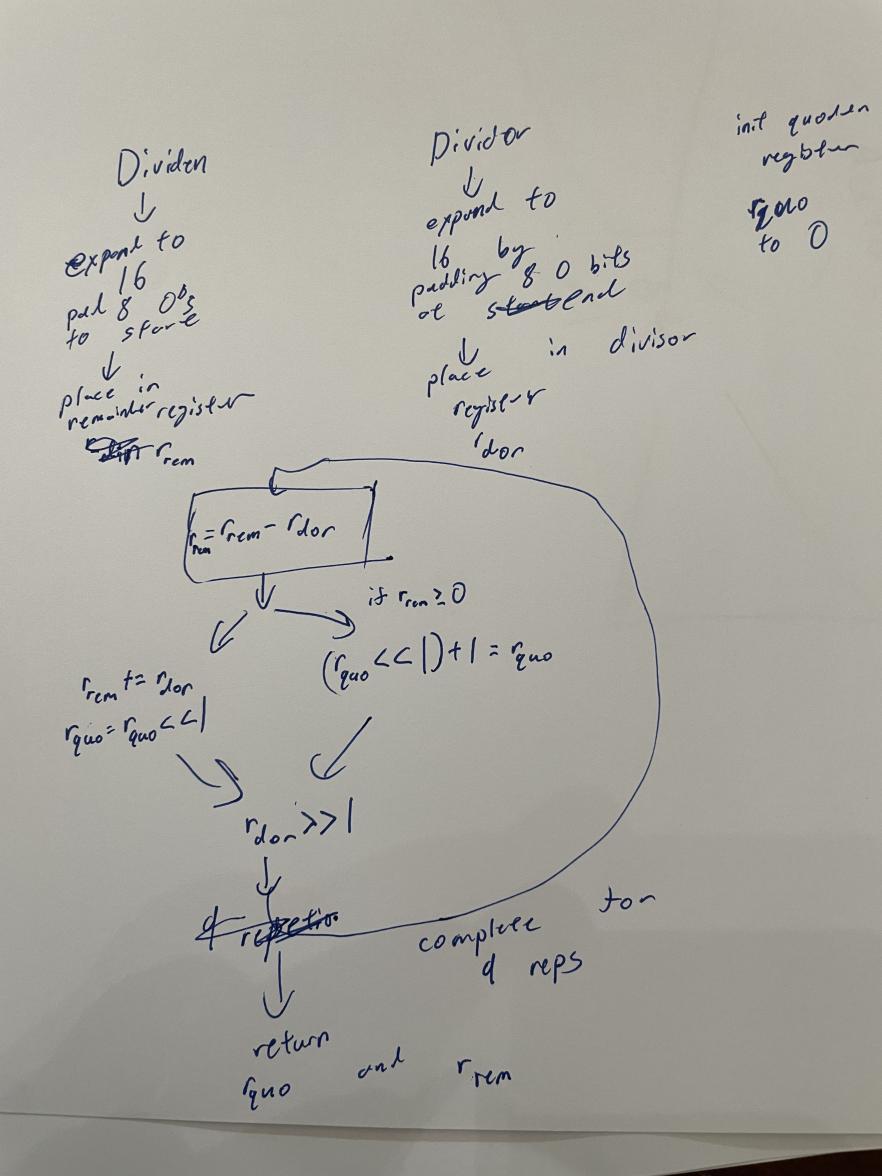 Dividen
expand to
16
pad 8 0's
to start
place in
remainder register
r rem
Dividor
expand to
16 by
padding 8 0 bits
at end
place in divisor
register
r dor
init quoden
register
r quo
to 0
r rem = r rem - r dor
if r rem ≥ 0
(r quo << 1) + 1 = r quo
r rem += r dor
r quo = r quo << 1
r dor >> 1
complete for
9 reps
return
r quo and r rem